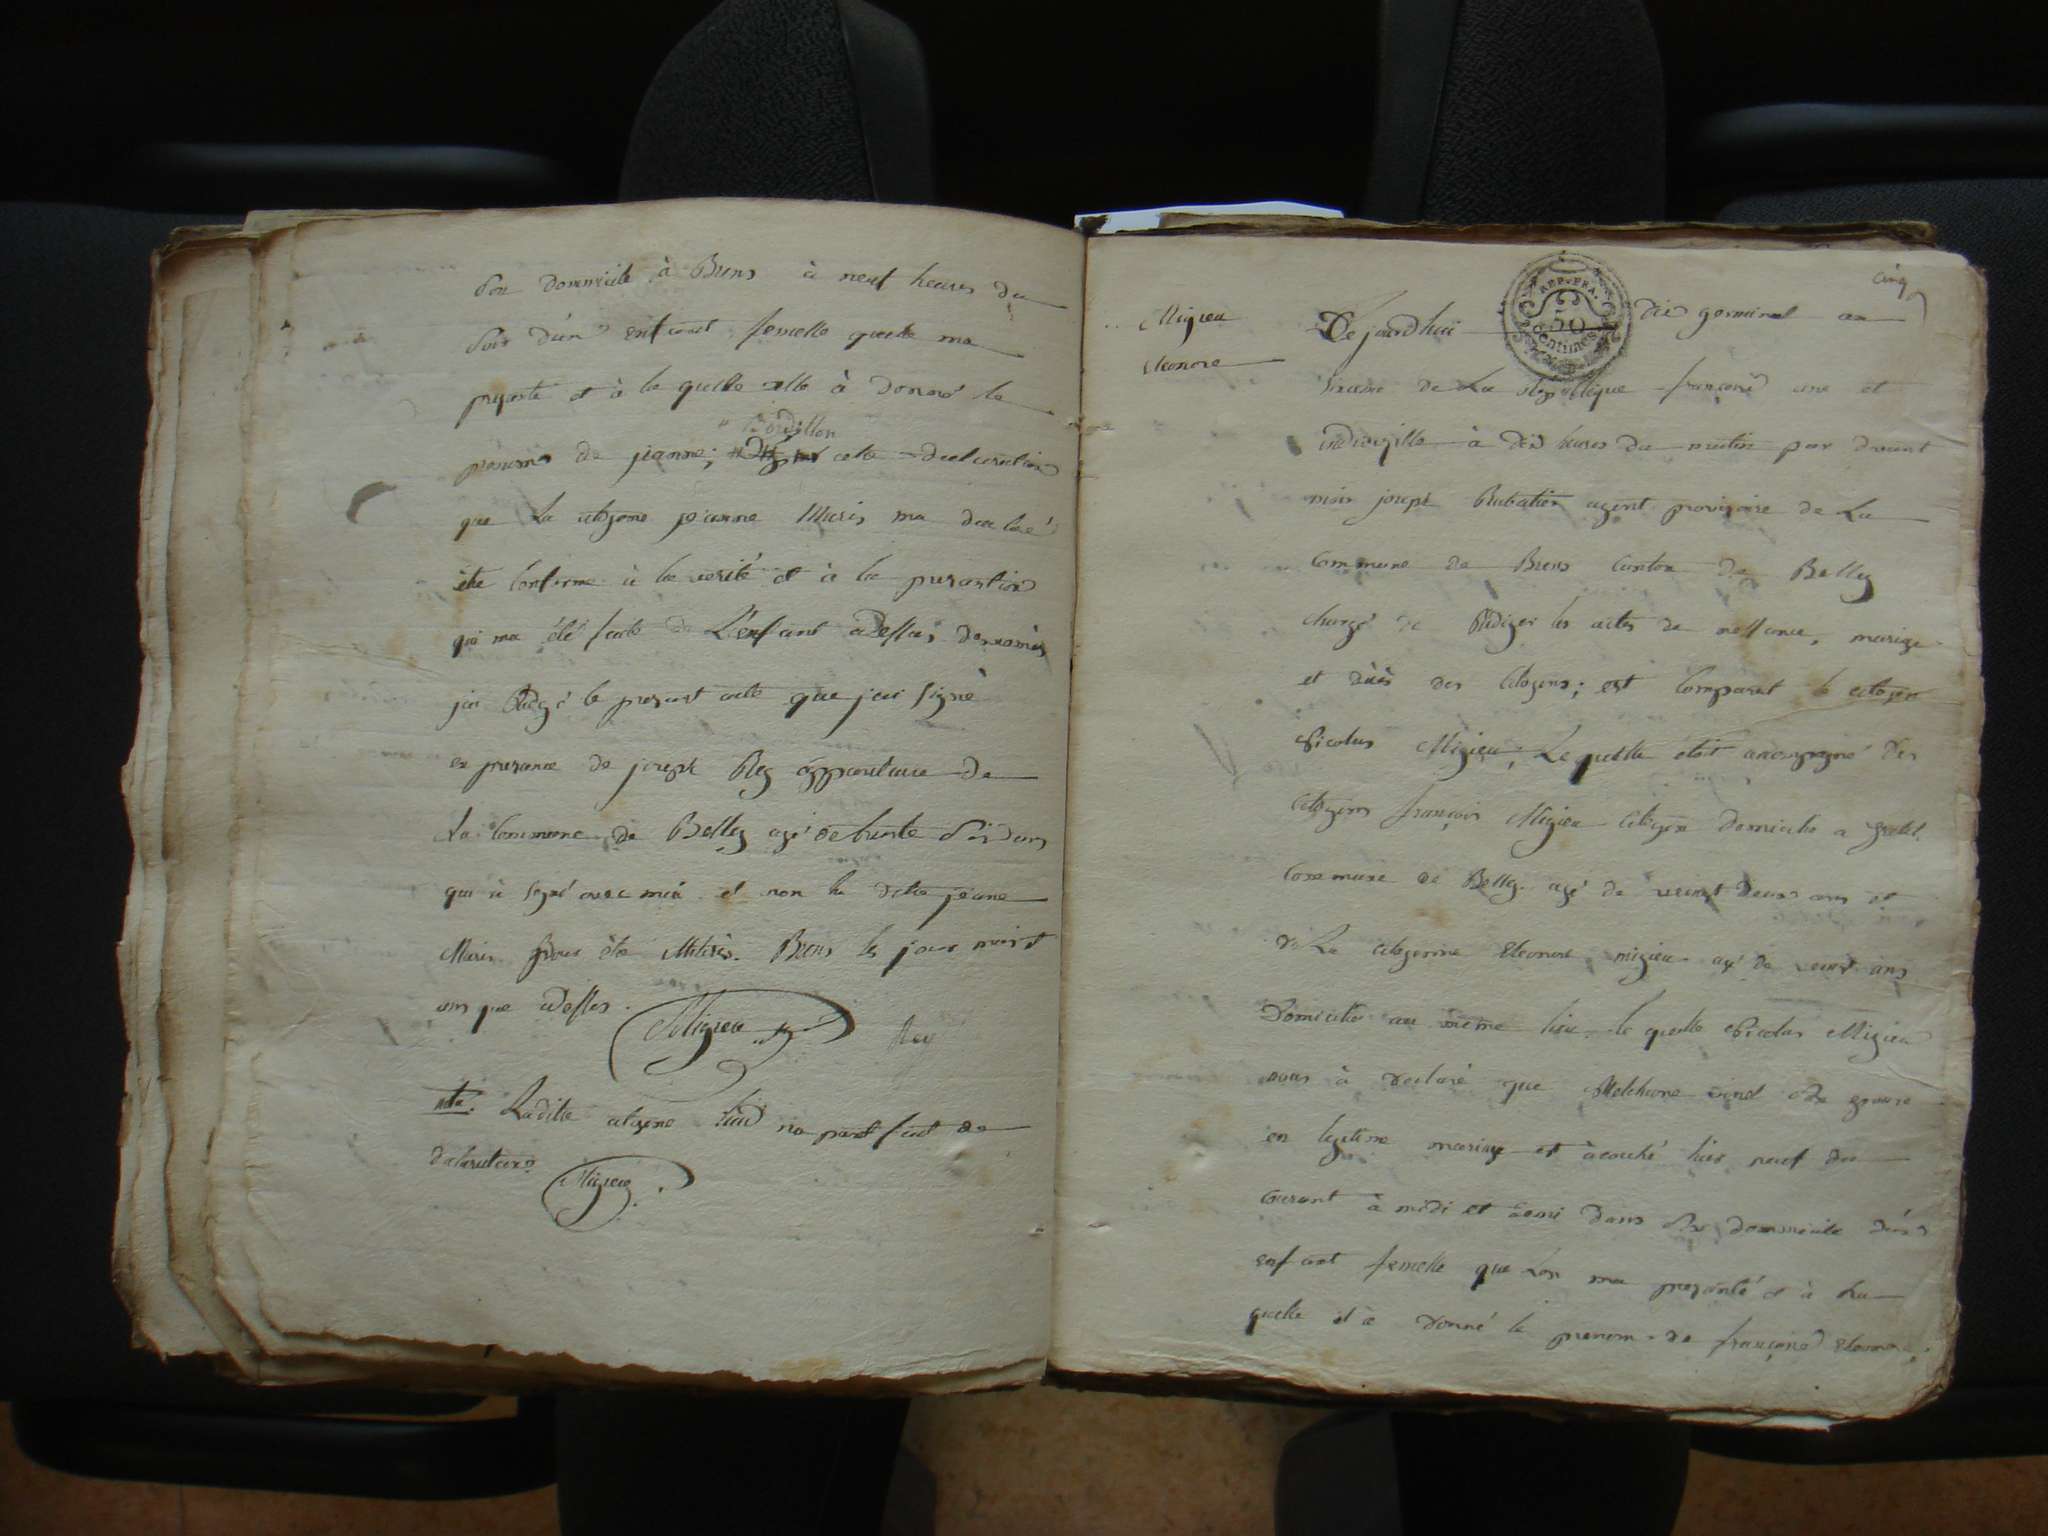 son dommicile à Bens à neuf heures du
soir d'un enfant femelle quelle ma
presanté et à la quelle elle à donné le
" Bordillon
prenoms de jeanne; cette declaration
que La citoyene jeanne Muris ma declaré
être Conforme à la verité et à la presantion
qui ma été faite de L'enfant adessus denomés
jai Rédigé le presant acte que jai Signé
en presance de joseph Rey appariteure de
La Commune de Belley agé de trente Sis ans
qui à signé avec moi et non la dite jeane
Muris pour être Illiteré. Bens les jour mois et
ans que adessus.
Migieu agt Rey
nota. Ladite citoyene na point fait de
declaration
Migieu
cinq
Migieu
Eleonore
REP. FRA.
50
Centimes
Ce jourdhui dis germinal an
sixieme de La Republique françoise une et
indivizible à dis heures du matin par devant
moi joseph Rubatier agent provisoire de La
Commune de Bens Canton de Belley
chargé de Rédiger les actes de nessance, mariage
et décès des Citoyens; est Comparut le citoyen
Nicolas Migieu; Le quelle étoit acompagné des
Citoyens françois Migieu Citoyen domicilié a
Commune de Belley agé de veingt deux ans et
de La citoyenne Eleonore migieu agé de ans
Domicilié au même lieu le quelle Nicolas Migieu
nous à declaré que Melchione son epouse
en legitime mariage et àcouché hier neuf du
Courant à midi et demi dans son dommicile d'un
enfant femelle que Lon ma presanté et à La
quelle il à donné le prenom de françoise Eleonore.